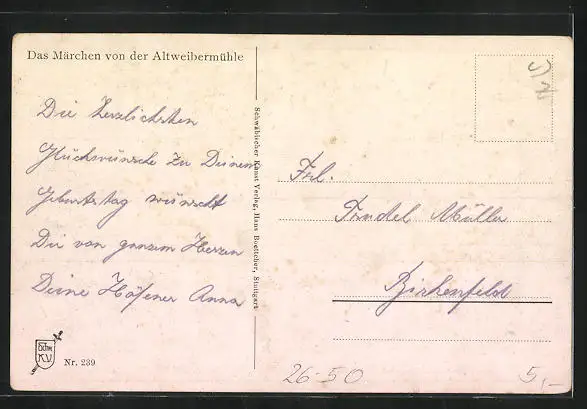 Das Märchen von der Altweibermühle
Die herzlichsten
Glückwünsche zu Deinem
Geburtstag wünscht
Dir von ganzem Herzen
Deine Höfener Anna
Schwäbischer Kunst Verlag, Hans Boettcher, Stuttgart
Frl.
Trudel Müller
Birkenfeld
Nr. 239
26-50
5,-